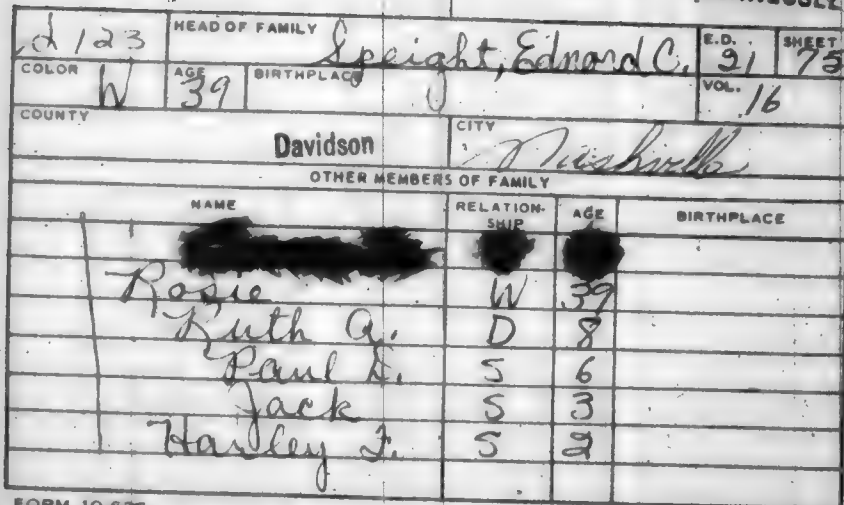 HEAD OF FAMILY Speight, Ednard C. E.D. 21 SHEET 75
COLOR W AGE 39 BIRTHPLACE VOL. 16
COUNTY Davidson CITY Nashville
OTHER MEMBERS OF FAMILY
NAME RELATION-SHIP AGE BIRTHPLACE
Rosie W 39
Ruth A. D 8
Paul S 6
Jack S 3
Harley F. S 2